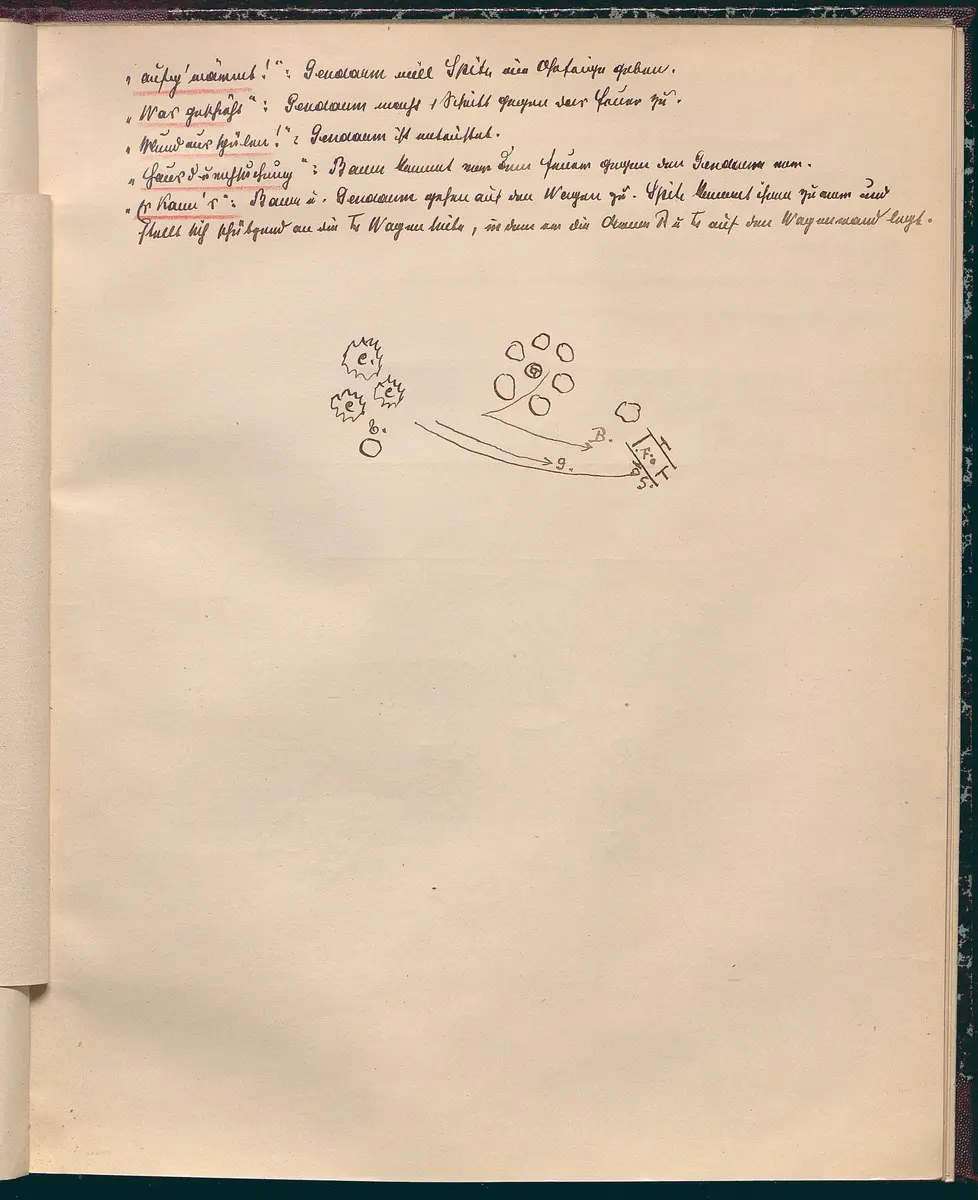 „aufg'nämmt!“: Gendarm will Spitz eine Ohrfeige geben.
„Was geschieht“: Gendarm macht 1 Schritt gegen das Feuer zu.
„Mund ausspülen!“: Gendarm ist entrüstet.
„Hausdurchsuchung“: Baum kommt vom Feuer gegen den Gendarm vor.
„Er kann's“: Baum u. Gendarm gehen auf den Wagen zu. Spitz kommt ihnen zuvor und
stellt sich schützend an die Wagentüte, indem er die Arme R u L auf den Wagenwand legt.
C.
C C
B.
B.
g.
F.
S.